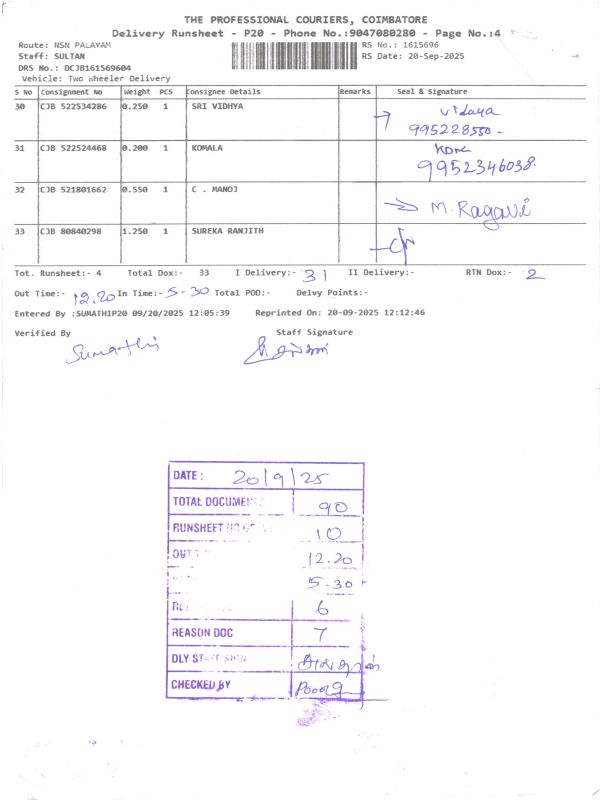 THE PROFESSIONAL COURIERS, COIMBATORE
Delivery Runsheet - P20 - Phone No.:9047080280 - Page No.:4
Route: NSN PALAYAM RS No.: 1615696
Staff: SULTAN RS Date: 20-Sep-2025
DRS No.: DCJB161569604
Vehicle: Two Wheeler Delivery
S No Consignment No Weight PCS Consignee Details Remarks Seal & Signature
30 CJB 522534286 0.250 1 SRI VIDHYA Vidaya
995228550
31 CJB 522524468 0.200 1 KOMALA
9952346038
32 CJB 521801662 0.550 1 C . MANOJ M. Ragavi
33 CJB 80840298 1.250 1 SUREKA RANJITH
Tot. Runsheet:- 4 Total Dox:- 33 I Delivery:- 31 II Delivery:- RTN Dox:- 2
Out Time:- 12.20 In Time:- 5-30 Total POD:- Delvy Points:-
Entered By :SUMATHIP20 09/20/2025 12:05:39 Reprinted On: 20-09-2025 12:12:46
Verified By Staff Signature
Sumathi
DATE : 20/9/25
TOTAL DOCUMENT 90
RUNSHEET 10
OUT 12.20
5-30
6
REASON DOC 7
DLY STAFF SIGN
CHECKED BY